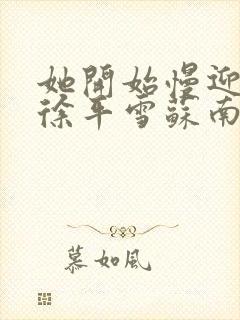 她開始慢迎
徐平雪蘇南
慕如風